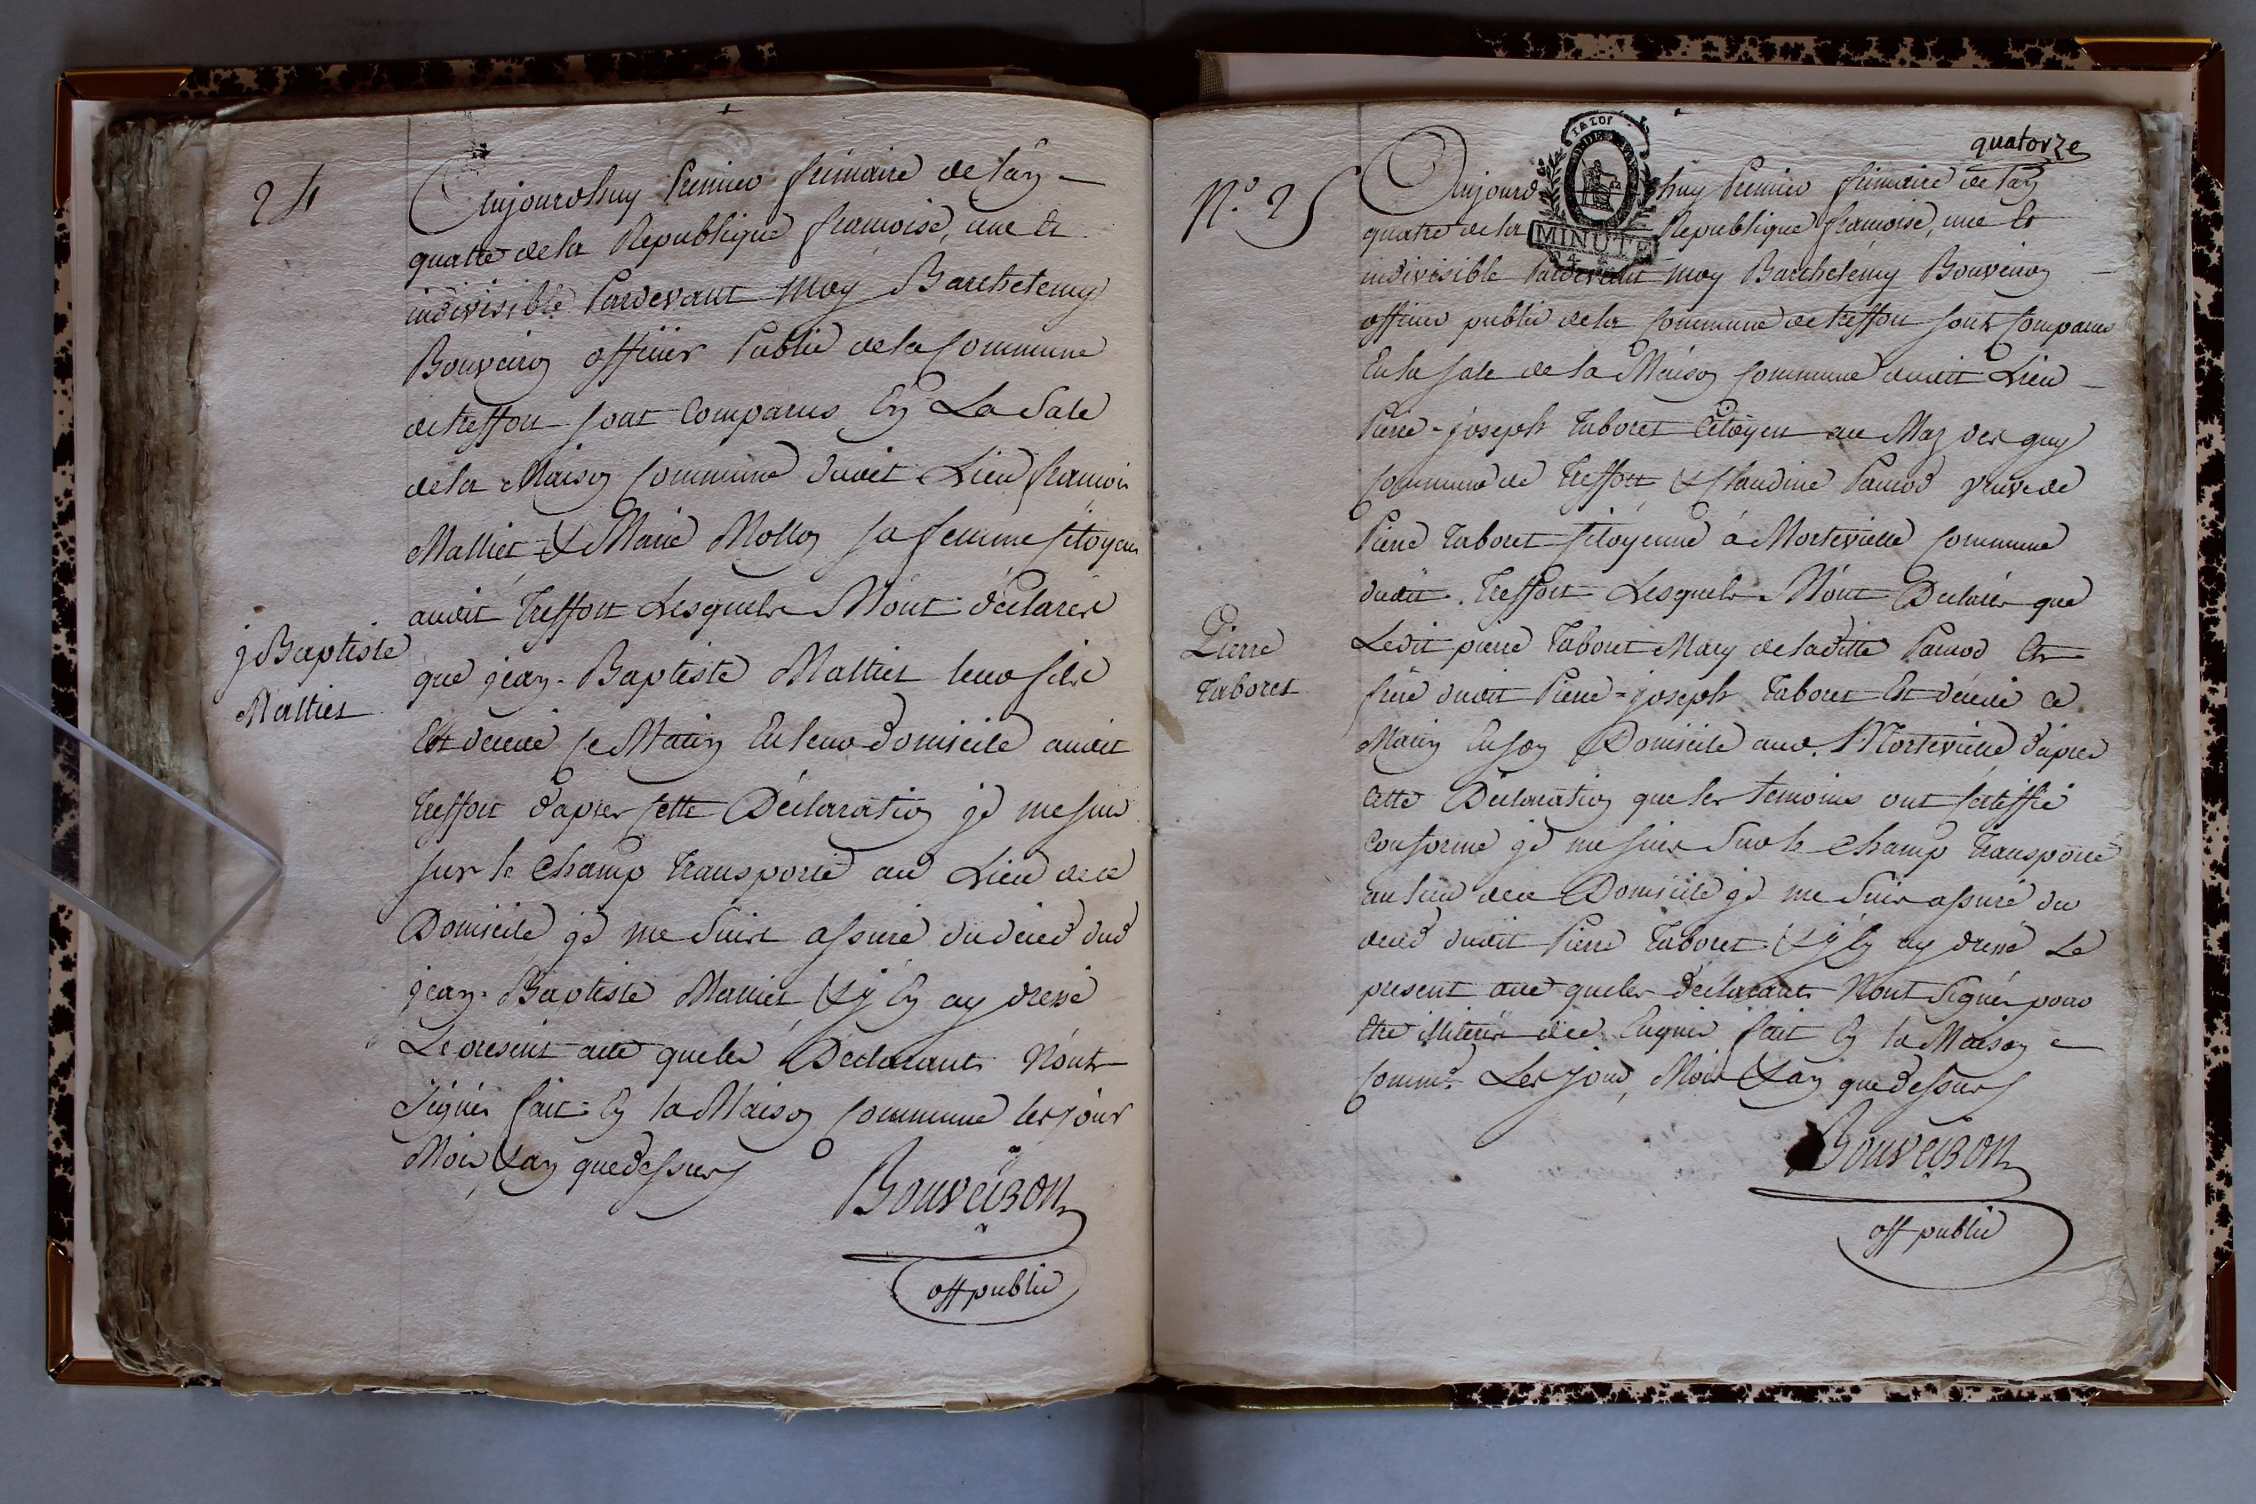 24
Aujourdhuy Premier frimaire de l'an
quatre de la Republique francoise, une Et
indivisible Pardevant Moy Barthelemy
Bouveiron officier Public de la Commune
de treffort sont Comparus En La Sale
de la Maison Commune dudit Lieu francois
Mallier & Marie Mollon sa femme Citoyens
audit Treffort Lesquels M'ont déclarés
que jean-Baptiste Mallier leur fils
Est decedé ce Matin En leur domicile audit
treffort d'apres cette Déclaration je me suis
sur le Champ transporté au Lieu de ce
Domicile je me Suis assuré du décéd dud
jean-Baptiste Mallier & j'En ay dressé
Le present acte que les Déclarants N'ont
signés fait En la Maison Commune les jour
Mois & an que dessus
j Baptiste
Mallier
Bouveiron
off public
quatorze
N.º 25
Aujourdhuy Premier frimaire de l'an
MINUTE
quatre de la Republique francoise, une Et
indivisible Pardevant moy Barthelemy Bouveiron
officier public de la Commune de treffort sont Comparus
En la sale de la Maison Commune dudit Lieu
Pierre-joseph Taboret Citoyen au Maz des guy
Commune de Treffort & Claudine Pauvod veuve de
Pierre Taboret Citoyenne á Mortevielle Commune
dudit Treffort Lesquels M'ont Declarés que
Ledit pierre Taboret Mary de laditte Pauvod Et
frere dudit Pierre-joseph Taboret Est décédé ce
Matin En son Domicile aud. Mortevielle d'apres
Cette Déclaration que les temoins ont certiffié
Conforme je me suis Sur le Champ transporté
au lieu de ce Domicile je me Suis assuré du
deced dudit Pierre Taboret & j'En ay dressé Le
present acte que les déclarants N'ont Signés pour
être illiterés de ce Enquis fait En la Maison
Comme. Les jour, Mois & an que dessus
Pierre
Taboret
Bouveiron
off public